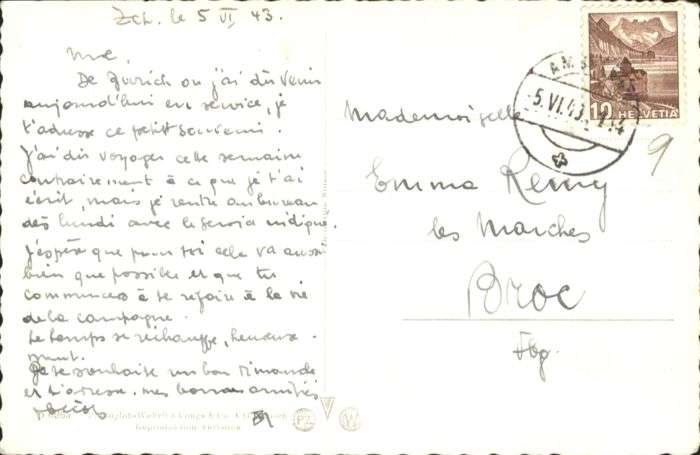 Zch. le 5 VI 43.
De Zurich où j'ai dû venir
aujourd'hui en service, je
t'adresse ce petit souvenir.
J'ai dû voyager cette semaine
contrairement à ce que je t'ai
écrit, mais je rentre au bureau
dès lundi avec le
J'espère que pour toi cela va aussi
bien que possible et que tu
commences à te refaire à la vie
de la campagne.
Le temps se réchauffe, heureuse-
ment.
Je te souhaite un bon dimanche
et t'adresse mes bonnes amitiés
AMS
5.VI.43
10 HELVETIA
Mademoiselle
Emma Remy
les Marches
Broc
Fbg.
9
PZ W